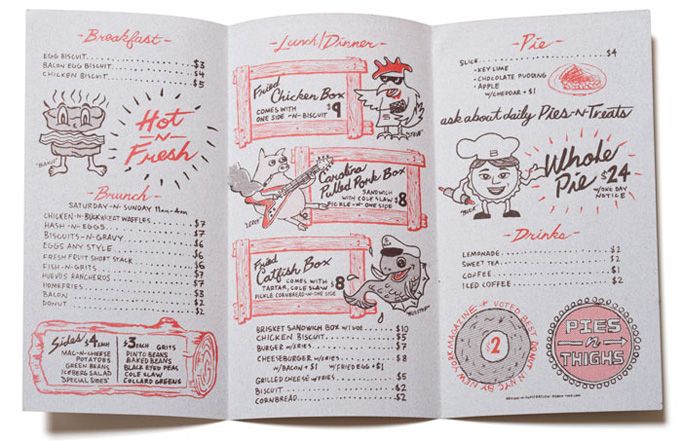 -Breakfast-
EGG BISCUIT $3
BACON EGG BISCUIT $4
CHICKEN BISCUIT $5
Hot
-N-
Fresh
-Brunch-
SATURDAY-N-SUNDAY 11am-4pm
CHICKEN-N-BUCKWHEAT WAFFLES $7
HASH-N-EGGS $7
BISCUITS-N-GRAVY
EGGS ANY STYLE $6
FRESH FRUIT SHORT STACK $6
FISH-N-GRITS
HUEVOS RANCHEROS $7
HOMEFRIES
BACON
DONUT $2
Sides $4 EACH
MAC-N-CHEESE
POTATOES
GREEN BEANS
ICEBERG SALAD
"SPECIAL SIDES"
$3 EACH GRITS
PINTO BEANS
BAKED BEANS
BLACK EYED PEAS
COLE SLAW
COLLARD GREENS
-Lunch/Dinner-
Fried
Chicken Box
COMES WITH
ONE SIDE -N- BISCUIT
$9
Carolina
Pulled Pork Box
SANDWICH
WITH COLE SLAW
PICKLE -N- ONE SIDE
$8
Fried
Catfish Box
COMES WITH
TARTAR, COLE SLAW
PICKLE CORNBREAD-N-ONE SIDE
$8
BRISKET SANDWICH BOX W/1 SIDE $10
CHICKEN BISCUIT $5
BURGER W/FRIES $7
CHEESEBURGER W/FRIES $8
W/BACON +$1 W/FRIED EGG +$1
GRILLED CHEESE W/FRIES $5
BISCUIT $2
CORNBREAD $2
-Pie-
SLICE $4
• KEY LIME
• CHOCOLATE PUDDING
• APPLE
W/CHEDDAR +$1
ask about daily Pies-N-Treats
Whole
Pie $24
W/ONE DAY
NOTICE
-Drinks-
LEMONADE $2
SWEET TEA $2
COFFEE $1
ICED COFFEE $2
VOTED BEST DONUT IN NYC BY NEW YORK MAGAZINE
$2
PIES
-n-
THIGHS